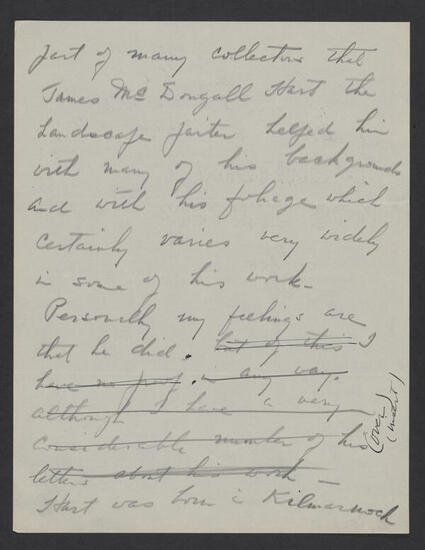 part of many collections that
James McDougall Hart the
Landscape painter helped him
with many of his backgrounds
and with his foliage which
certainly varies very widely
in some of his work -
Personally my feelings are
that he did. but of this I
have no proof in any way.
although I have a very
considerable number of his
letters about his work -
Hart was born in Kilmarnock
(over)
(insert)